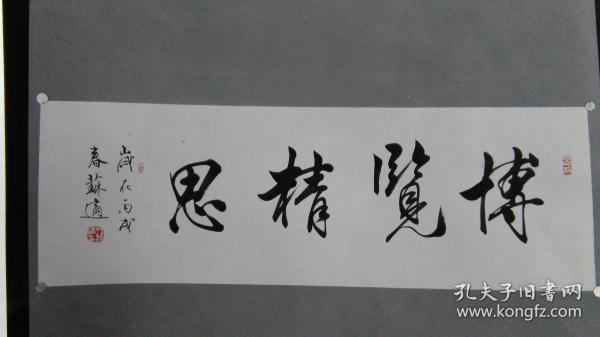 博覽精思
歲在丙戌
春蘇適
孔夫子旧書网
www.kongfz.com